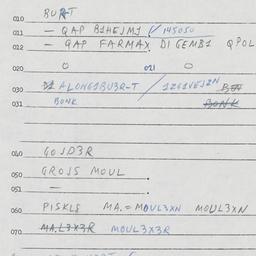 010 BURT
011 - QAP B1HEJM1 (/145050
012 - QAP FARMAX DIGEMB1 QPOL
020 O 021 O
030 ALONG1BU3R-T / 1261VEJ2N
031 BONK BONK
040 GOJD3R
050 GROJJ MOUL
051 —
060 PISKLS MA.= MOUL3XN MOUL3XN
070 MA.L3X3R MOUL3X3R